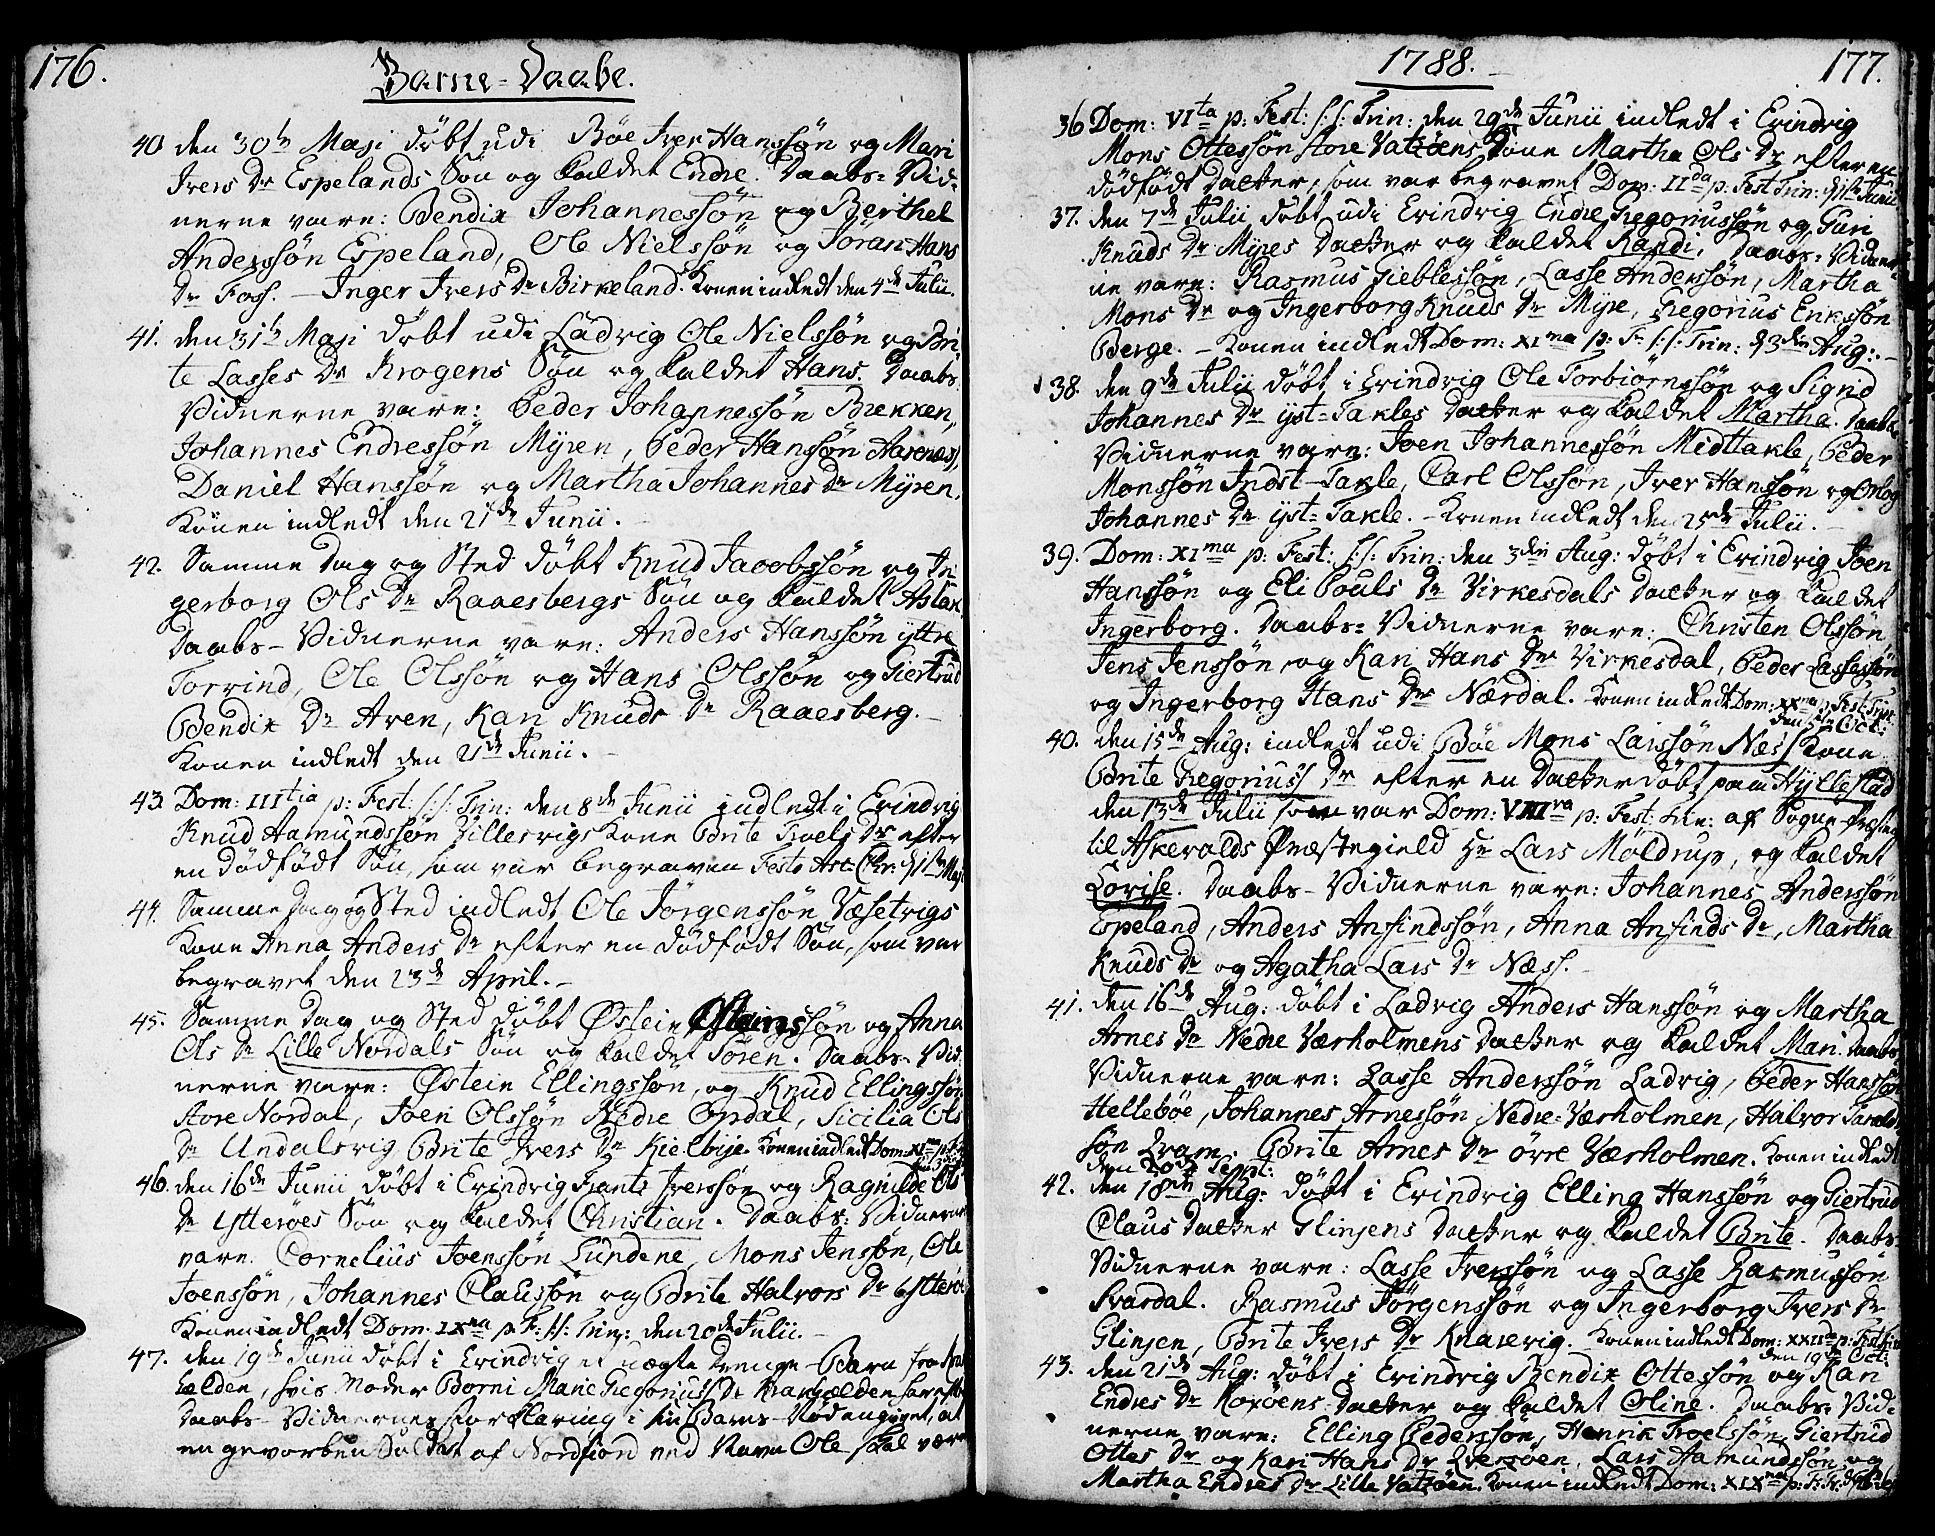 176.
Barne-Daabe.
40 den 30te Maji døbt udi Bøe Iver Hanssøn og Mari
Ivers Dr Espelands Søn og kaldet Endre. Daabs-Vid-
nerne vare: Bendix Johannessøn og Berthel
Anderssøn Espeland, Ole Nielssøn og Jøran Hans
Dr Foss. – Inger Ivers Dr Birkeland. Konen indledt den 4de Julii.
41. den 31te Maji døbt udi Ladvig Ole Nielssøn og Bri-
te Lasses Dr Krogens Søn og kaldet Hans. Daabs-
Vidnerne vare: Peder Johannessøn Brekken,
Johannes Endressøn Myren, Peder Hanssøn
Daniel Hanssøn og Martha Johannes Dr Myren.
Konen indledt den 21de Junii.
42. Samme Dag og Sted døbt Knud Jacobssøn og In-
gerborg Ols Dr Raaesbergs Søn og kaldet Aslak
Daabs-Vidnerne vare: Anders Hanssøn yttre
Torvind, Ole Olssøn og Hans Olssøn og Giertrud
Bendix Dr Aven, Kari Knuds Dr Raaesberg. –
Konen indledt den 21de Junii. –
43. Dom: IIItia p: Fest: S:S: Trin: den 8de Junii indledt i Evindvig
Knud Aamundssøn Hillesvigs Kone Brite Troels Dr efter
en dødfødt Søn, som var begraven Festo Asc: Chr: d: 1ste Maji
44. Samme Dag og Sted indledt Ole Jørgenssøn Væsetvigs
Kone Anna Anders Dr efter en dødfødt Søn, som var
begravet den 23de April. –
45. Samme Dag og Sted døbt Østein Østeinssøn og Anna
Ols Dr Lille Nordals Søn og kaldet Søren. Daabs-Vid-
nerne vare: Østein Ellingssøn, og Knud Ellingssøn
store Nordal, Joen Olssøn Nedre Opdal, Sicilia Ols
Dr Undalsvig Brite Ivers Dr Kielbye. Konen indledt Dom: XIma p: F:
46. den 16de Junii døbt i Evindvig Frants Iverssøn og Ragnilde Ols
Dr Ytterøes Søn og kaldet Christian. Daabs-Vidnerne
vare. Cornelius Joenssøn Lundene, Mons Jenssøn, Ole
Joenssøn, Johannes Claussøn og Brite Halvors Dr Ytterøe
Konen indledt Dom: IXna p: F: S:S: Trin: den 20de Julii. –
47. den 19de Junii døbt i Evindvig et uægte Drenge-Barn fra
hvis Moder Borni Marie Gregoriuss Dr
Daabs-Vidnernes Forklaring i Barns-Nød angivet, at
en gevorben Soldat af Nordfiord ved Navn Ole skal være
1788. –
177.
36 Dom: VIta p: Fest: S:S: Trin: den 29de Junii indledt i Evindvig
Mons Ottessøn store Vatzøens Kone Martha Ols Dr efter en
dødfødt Datter, som var begravet Dom: IIda p: Fest Trin: d: 1ste Junii
37. den 7de Julii døbt udi Evindvig Endre Gregoriussøn og Guri
Knuds Dr Myres Datter og kaldet Randi. Daabs-Vidner-
ne vare: Rasmus Gieblessøn, Lasse Anderssøn, Martha
Mons Dr og Ingerborg Knuds Dr Myre, Gregorius Erikssøn
Berge. – Konen indledt Dom: XIma p: F: S:S: Trin: d: 3die Aug: –
38. den 9de Julii døbt i Evindvig Ole Torbiørnssøn og Sigrid
Johannes Dr yst-Takles Datter og kaldet Martha. Daabs-
Vidnerne vare: Joen Johannessøn Midttakle, Peder
Monssøn Indst-Takle, Carl Olssøn, Iver Hanssøn og
Johannes Dr yst-Takle. – Konen indledt den 25de Julii. –
39. Dom: XIma p: Fest: S:S: Trin: den 3die Aug: døbt i Evindvig Joen
Hanssøn og Eli Pouls Dr Virkesdals Datter og kaldet
Ingerborg. Daabs-Vidnerne vare: Christen Olssøn
Jens Jenssøn og Kari Hans Dr Virkesdal, Peder Lassessøn
og Ingerborg Hans Dr Nærdal. Konen indledt Dom: XXma p: Fest: Trin:
den 5te Oct:
40. den 15de Aug: indledt udi Bøe Mons Larssøn Næss Kone
Brite Gregoriuss Dr efter en Datter døbt paa Hyllestad
den 13de Julii som var Dom: VIIIva p: Fest: Trin: af Sogne-Præsten
til Askevolds Præstegield Hr Lars Møldrup, og kaldet
Lovise. Daabs-Vidnerne vare: Johannes Anderssøn
Espeland, Anders Anfindssøn, Anna Anfinds Dr, Martha
Knuds Dr og Agatha Lars Dr Næss.
41. den 16de Aug: døbt i Ladvig Anders Hanssøn og Martha
Arnes Dr Nedre Værholmens Datter og kaldet Mari. Daabs-
Vidnerne vare: Lasse Anderssøn Ladvig, Peder Hanssøn
Hellebøe, Johannes Arnessøn Nedre-Værholmen, Halvor
søn Brite Arnes Dr øvre Værholmen. Konen indledt
den 20de Sept:
42. den 18de Aug: døbt i Evindvig Elling Hanssøn og Giertrud
Claus Datter Glinjens Datter og kaldet Brite. Daabs-
Vidnerne vare: Lasse Iverssøn og Lasse Rasmussøn
Svardal. Rasmus Jørgenssøn og Ingerborg Ivers Dr
Glinjen, Brite Ivers Dr Knarvig. – Konen indledt Dom: XXIIda p: Fest: Trin:
den 19de Oct:
43. den 21de Aug: døbt i Evindvig Bendix Ottessøn og Kari
Endres Dr Koxøens Datter og kaldet Oline. Daabs-Vid-
nerne vare: Elling Pederssøn, Henrik Troelssøn, Giertrud
Ottes Dr og Kari Hans Dr Lars Aamundssøn og
Martha Endres Dr Lille Vatzøen. Konen indledt Dom: XIXna p: F: Tr: